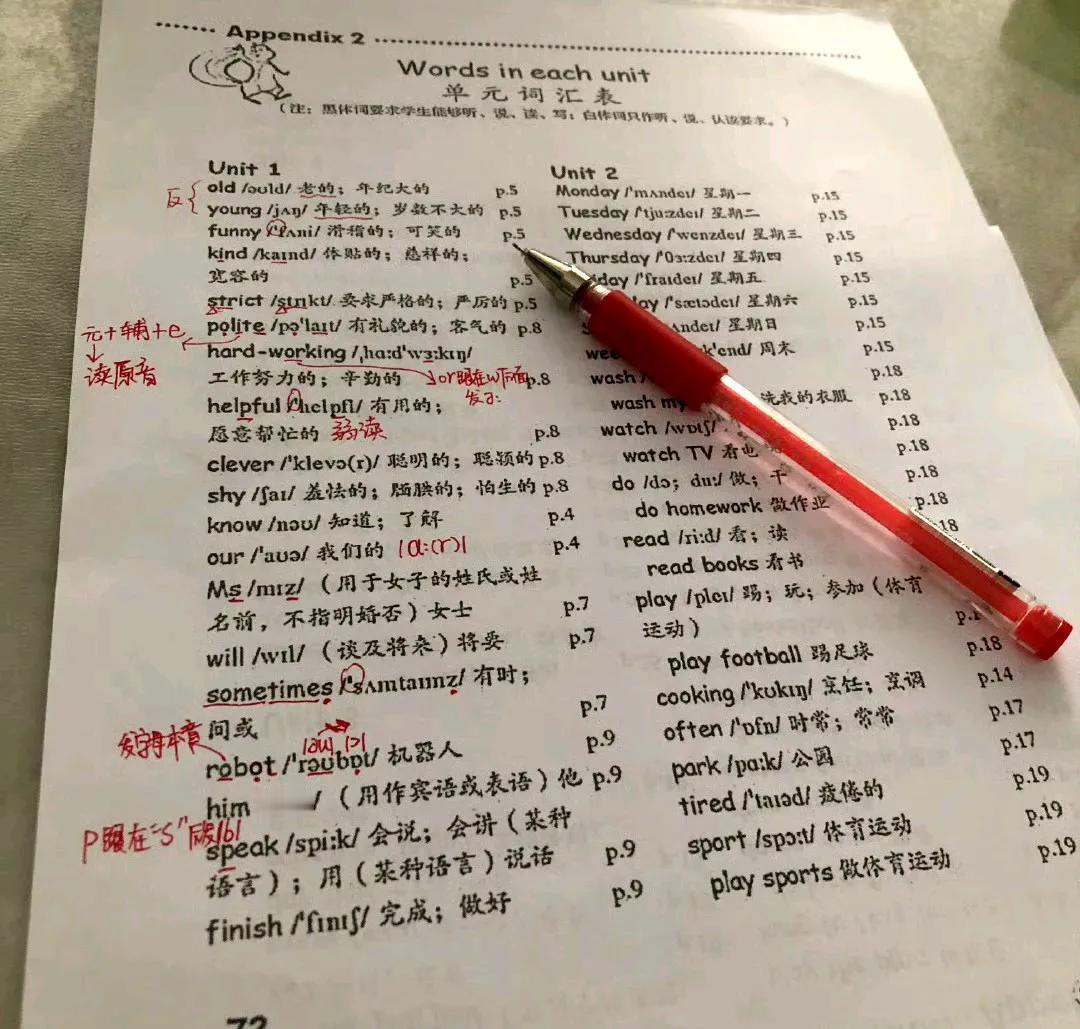 Appendix 2
Words in each unit
单元词汇表
(注：黑体词要求学生能够听、说、读、写；白体词只作听、说、认读要求。)
Unit 1
反{
old /əʊld/ 老的；年纪大的 p.5
young /jʌŋ/ 年轻的；岁数不大的 p.5
funny /'fʌni/ 滑稽的；可笑的 p.5
kind /kaɪnd/ 体贴的；慈祥的；
宽容的 p.5
strict /strɪkt/ 要求严格的；严厉的 p.5
元+辅+e
polite /pə'laɪt/ 有礼貌的；客气的 p.8
读原音
hard-working /ˌhɑːd'wɜːkɪŋ/
工作努力的；辛勤的 p.8
or跟在w后面
发
helpful /'helpfl/ 有用的；
愿意帮忙的 p.8
弱读
clever /'klevə(r)/ 聪明的；聪颖的 p.8
shy /ʃaɪ/ 羞怯的；腼腆的；怕生的 p.8
know /nəʊ/ 知道；了解 p.4
our /'aʊə/ 我们的 p.4
|ɑ:(r)|
Ms /mɪz/ （用于女子的姓氏或姓
名前，不指明婚否）女士 p.7
will /wɪl/ （谈及将来）将要 p.7
sometimes /'sʌmtaɪmz/ 有时；
间或 p.7
发字母本音
|əu| |ɔ|
robot /'rəʊbɒt/ 机器人 p.9
him / （用作宾语或表语）他 p.9
P跟在"S"后发|b|
speak /spiːk/ 会说；会讲（某种
语言）；用（某种语言）说话 p.9
finish /'fɪnɪʃ/ 完成；做好 p.9
Unit 2
Monday /'mʌndeɪ/ 星期一 p.15
Tuesday /'tjuːzdeɪ/ 星期二 p.15
Wednesday /'wenzdeɪ/ 星期三 p.15
Thursday /'θɜːzdeɪ/ 星期四 p.15
day /'fraɪdeɪ/ 星期五 p.15
ay /'sætədeɪ/ 星期六 p.15
ʌndeɪ/ 星期日 p.15
wee k'end/ 周末 p.15
wash / p.18
wash my 洗我的衣服 p.18
watch /wɒtʃ/ p.18
watch TV 看电 p.18
do /də; duː/ 做；干 p.18
do homework 做作业 18
read /riːd/ 看；读
read books 看书
play /pleɪ/ 踢；玩；参加（体育
运动）
play football 踢足球 p.18
cooking /'kʊkɪŋ/ 烹饪；烹调 p.14
often /'ɒfn/ 时常；常常 p.17
park /pɑːk/ 公园 p.17
tired /'taɪəd/ 疲倦的 p.19
sport /spɔːt/ 体育运动 p.19
play sports 做体育运动 p.19
72